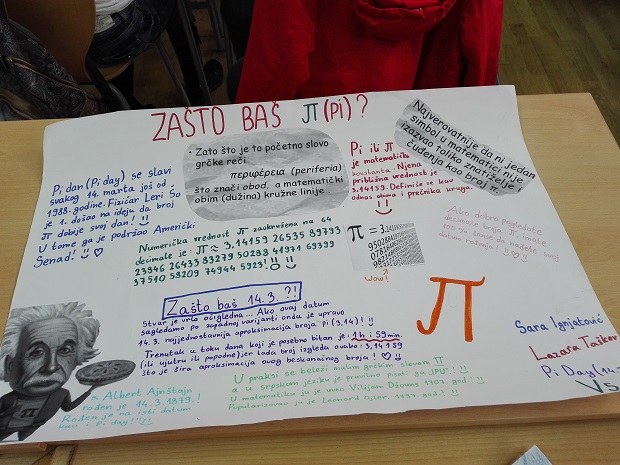 ZAŠTO BAŠ π (Pi)?
Pi dan (Pi day) se slavi
svakog 14. marta još od
1988. godine. Fizičar Leri Šo
je 1. došao na ideju da broj
π dobije svoj dan!
U tome ga je podržao Američki
Senat!
• Zato što je to početno slovo
grčke reči
περιφέρεια (periferia)
što znači obod, a matematički
obim (dužina) kružne linije.
Pi ili π
je matematička
konstanta. Njena
približna vrednost je
3,14159. Definiše se kao
odnos obima i prečnika kruga.
Najverovatnije da ni jedan
simbol u matematici nije
izazvao toliko maštarije i
čuđenja kao broj π.
Numerička vrednost π zaokružena na 64
decimale je: π ≈ 3,14159 26535 89793
23846 26433 83279 50288 41971 69399
37510 58209 74944 5923!
π = 3.
Wow!
Ako dobro pogledate
decimale broja π imate
100% šanse da nađete svoj
datum rođenja!
π
Zašto baš 14.3. ?!
Stvar je vrlo očigledna... Ako ovaj datum
sagledamo po zapadnoj varijanti onda je upravo
14.3. najjednostavnija aproksimacija broja pi (3,14)!
Trenutak u toku dana koji je posebno bitan je: 1h i 59min.
(ili ujutru ili popodne) jer tada broj izgleda ovako: 3,14159
što je šira aproksimacija ovog beskonačnog broja!
π
Albert Ajnštajn
rođen je 14.3.1879.!
Rođen je na isti datum
kao i Pi day!
U praksi se beleži malim grčkim slovom π
a u srpskom jeziku je pravilno pisati ga "PI"!
U matematiku ju je uveo Vilijam Džouns 1707. god.
Popularizovao ju je Leonard Ojler 1737. god!
Sara Ignjatović
Lazara Taškov
Pi Day (14.
V5